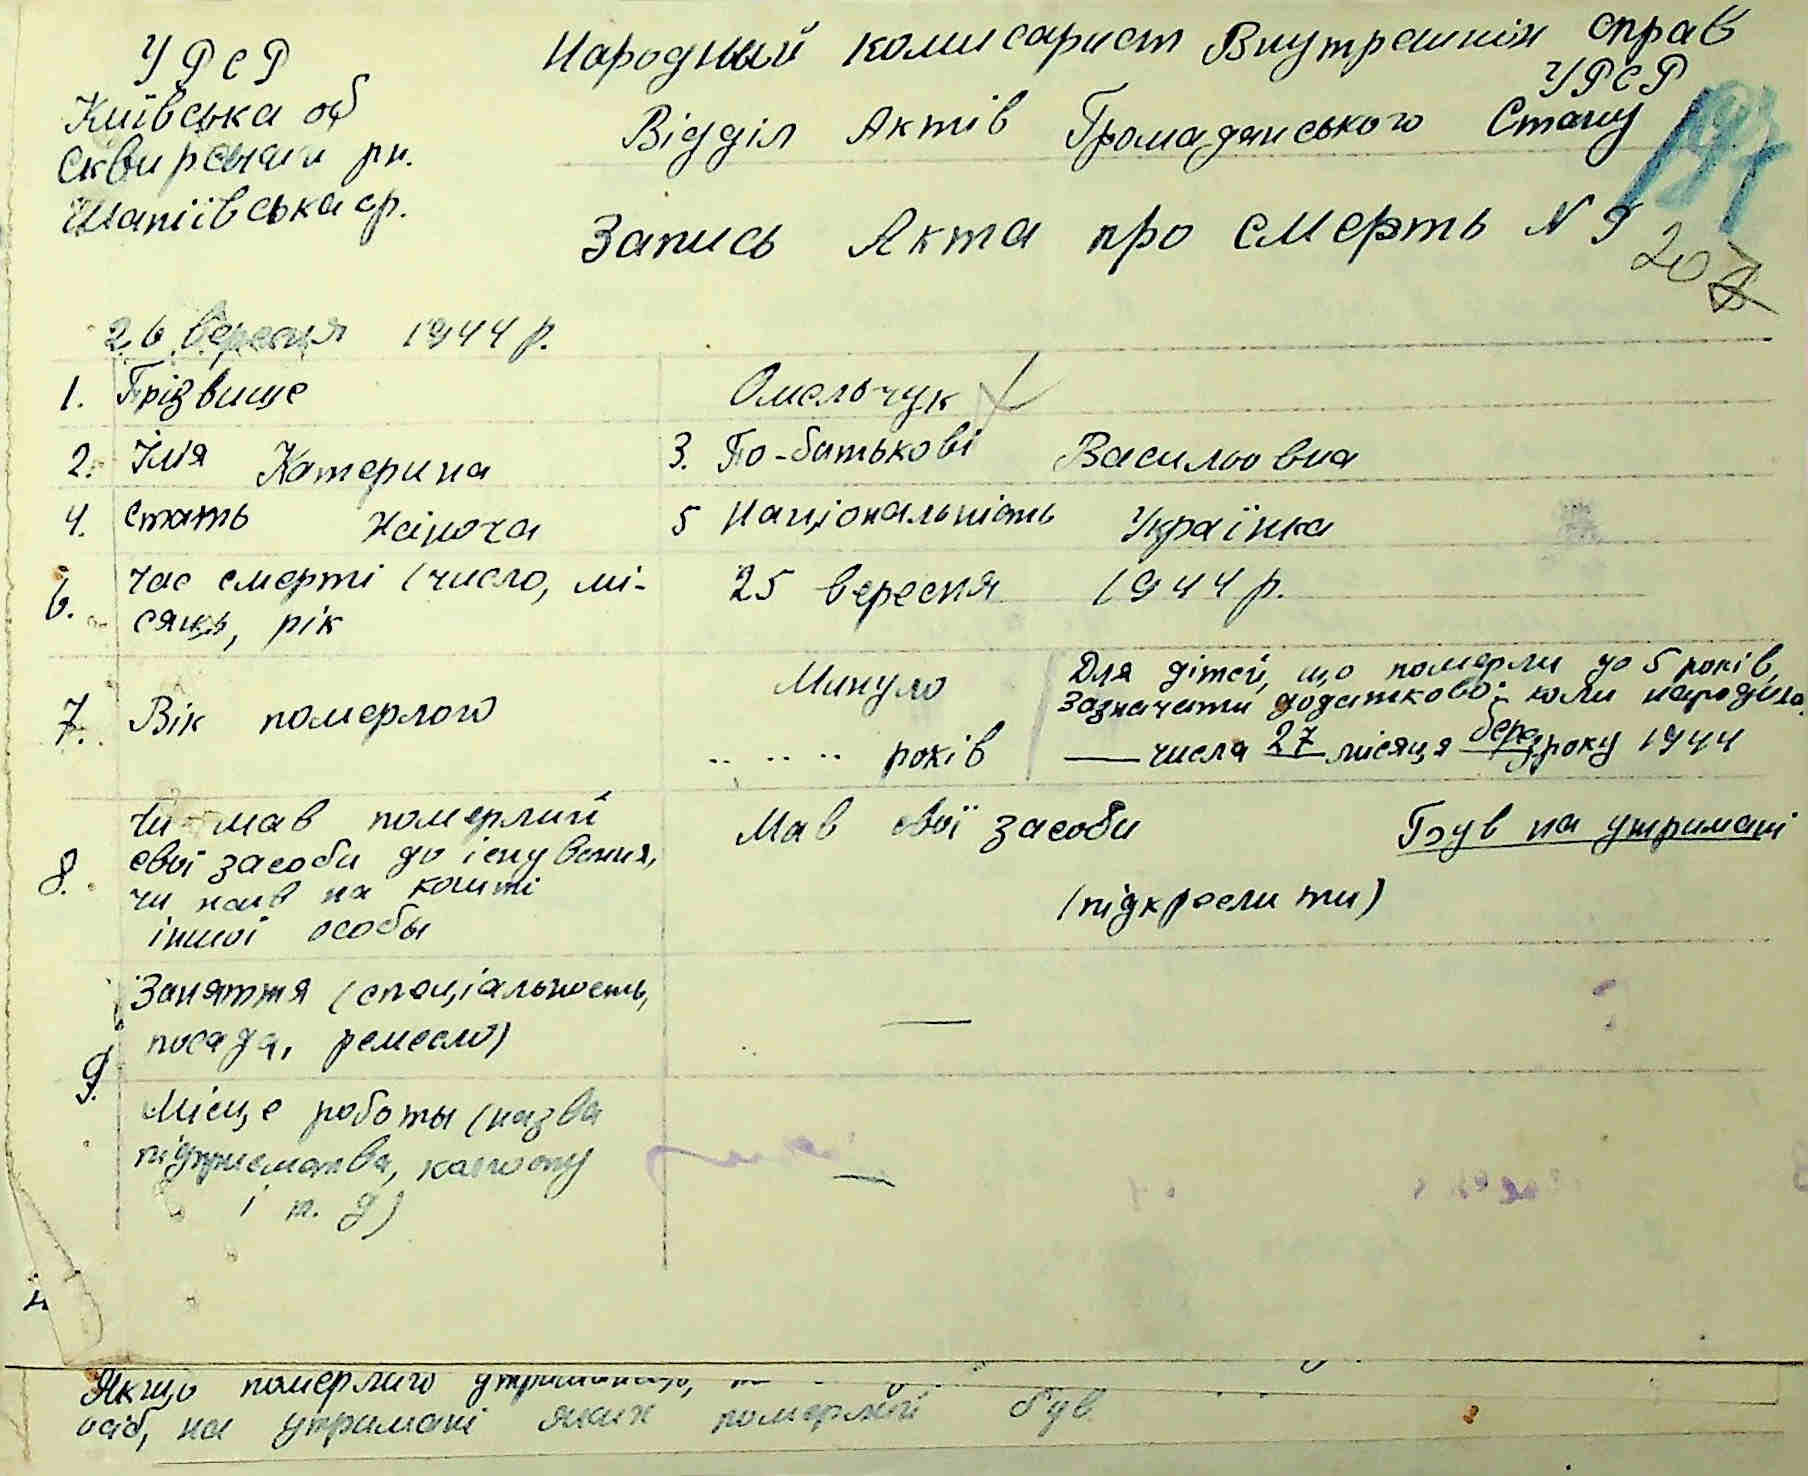 УРСР
Київська об
Сквирський рн.
Шапіївська ср.
Народный комисариат Внутрешніх справ
УРСР
Відділ Актів Громадянського Стану
Запись Акта про смерть N 9
207
26 вересня 1944 р.
1. Прізвище Омельчук
2. Імя Катерина 3. По-батькові Васильовна
4. Стать Жіноча 5 Національність Українка
6. Час смерті (число, мі-
сяць, рік 25 вересня 1944 р.
7. Вік померлого Минуло
.. .. .. років
Для дітей, що померли до 5 років,
зазначати додатково: коли народила
— числа 27 місяця бере року 1944
8. Чи мав померлий
свої засоби до існування,
чи жив на кошті
іншої особы
Мав свої засоби Був на утримані
(підкреслити)
9. Заняття (спеціальность,
посада, ремесло) —
Місце роботы (назва
підприємства, колгоспу
і т. д) —
Якщо померлого утриманець,
осіб, на утримані яких померлий був